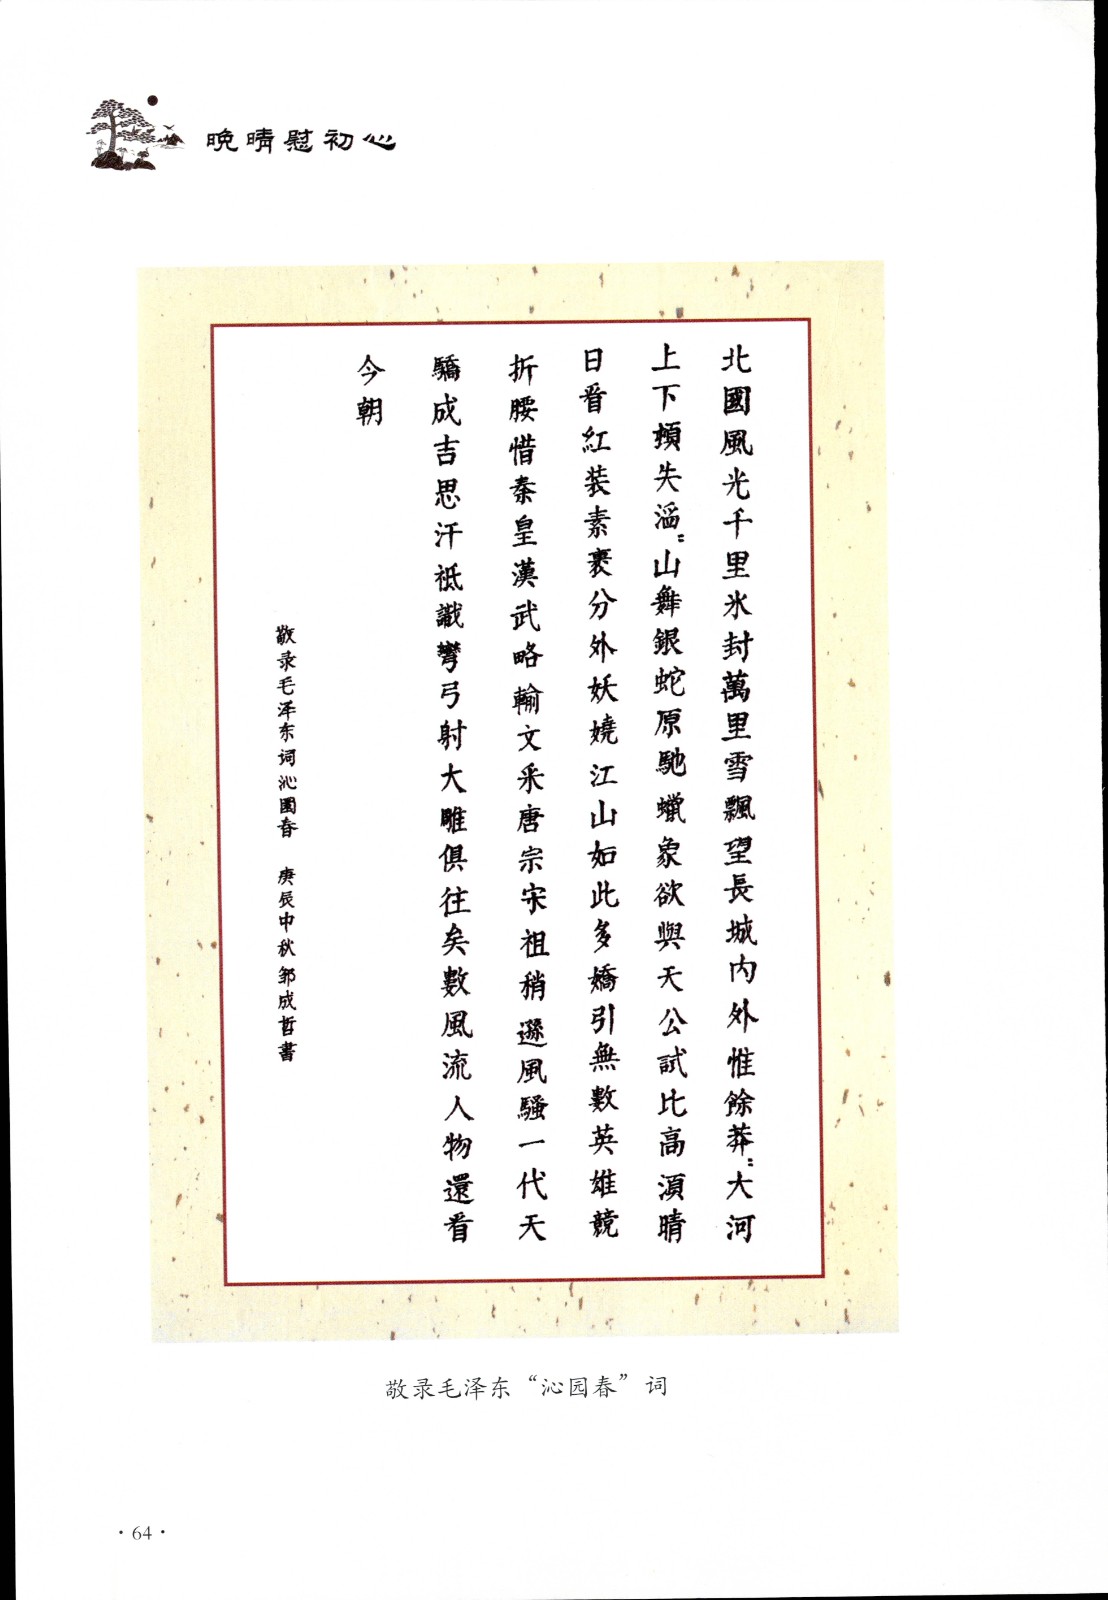 晚晴慰初心
北國風光千里氷封萬里雪飄望長城内外惟餘莽〻大河
上下頓失滔〻山舞銀蛇原馳蠟象欲與天公試比高須晴
日看紅装素裹分外妖嬈江山如此多嬌引無數英雄競
折腰惜秦皇漢武略輸文采唐宗宋祖稍遜風騷一代天
驕成吉思汗祗識彎弓射大雕俱往矣數風流人物還看
今朝
敬录毛泽东词沁園春 庚辰中秋邹成哲書
敬录毛泽东“沁园春”词
·64·